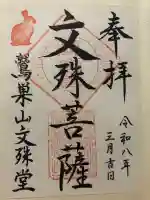 奉拝
令和八年
三月吉日
文殊菩薩
鷲巣山文殊堂